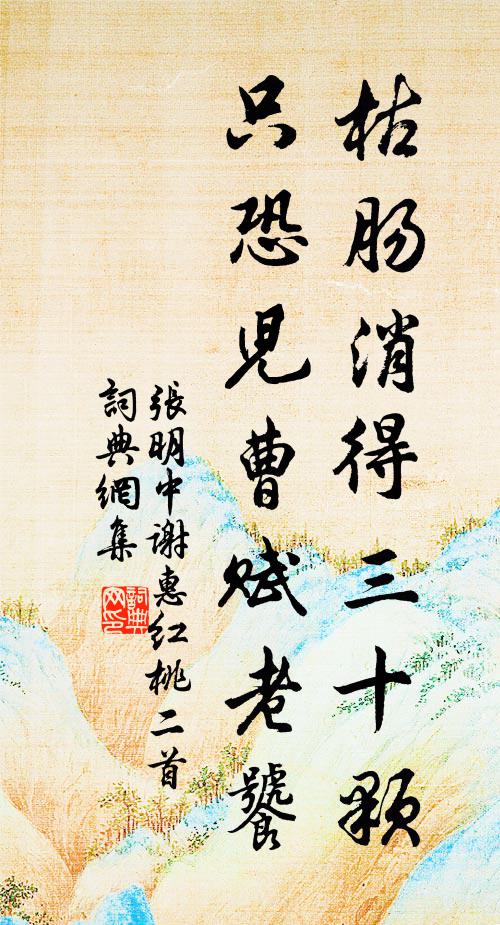 枯肠消得三十顆
只恐児曹賦老饕
張明中谢惠红桃二首
詞典網集
詞典網印